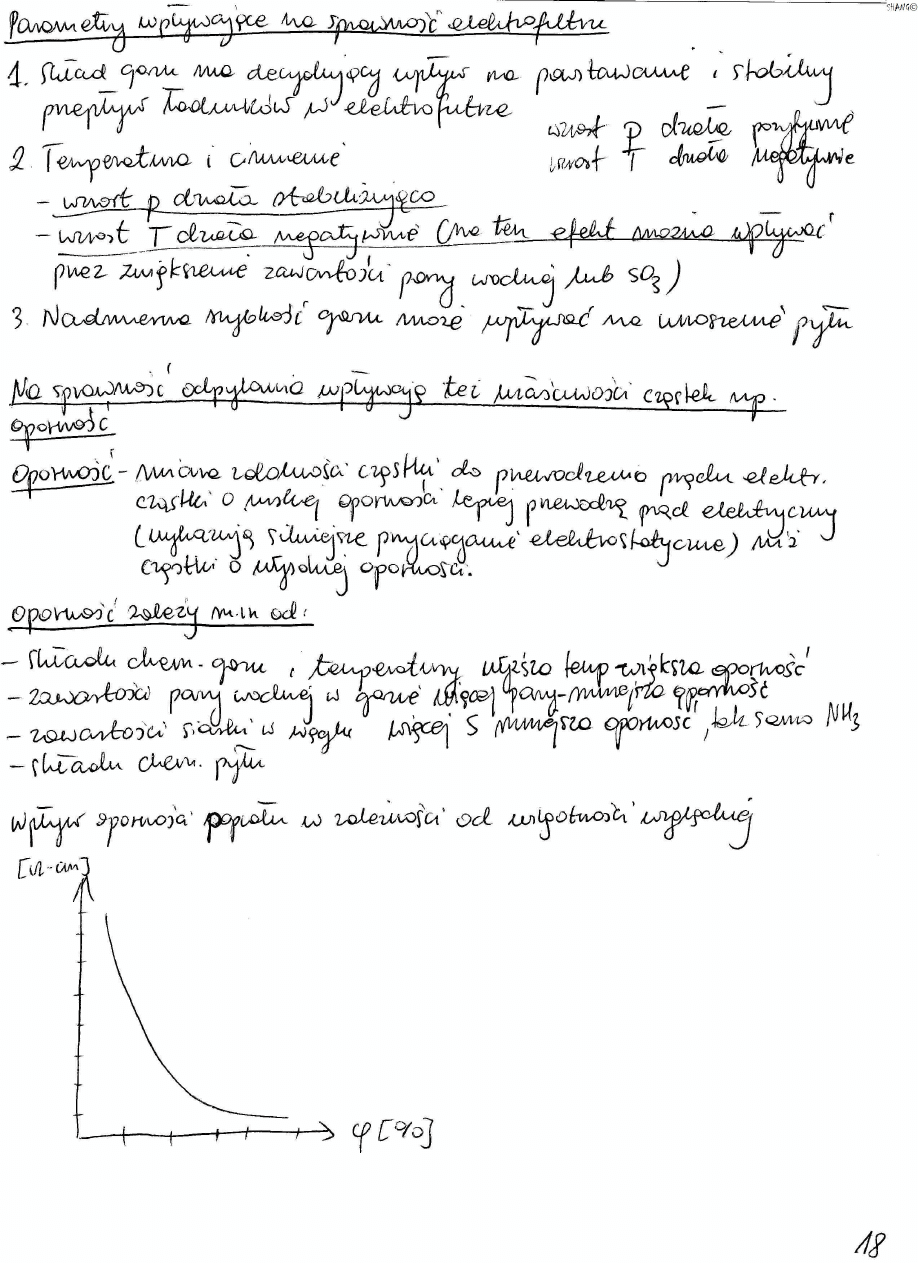 SHANG©
Parametry wpływające na sprawność elektrofiltru
1. Skład gazu ma decydujący wpływ na powstawanie i stabilny
przepływ ładunków w elektrofiltrze
wzrost p działa pozytywnie
wzrost T działa negatywnie
2. Temperatura i ciśnienie
- wzrost p działa stabilizująco
- wzrost T działa negatywnie (na ten efekt można wpływać
przez zwiększenie zawartości pary wodnej lub SO3)
3. Nadmierna szybkość gazu może wpływać na unoszenie pyłu
Na sprawność odpylania wpływają też właściwości cząstek np.
oporność
Oporność - miara zdolności cząstki do przewodzenia prądu elektr.
cząstki o niskiej oporności lepiej przewodzą prąd elektryczny
(wykazują silniejsze przyciąganie elektrostatyczne) niż
cząstki o wysokiej oporności.
Oporność zależy m.in od:
- składu chem. gazu i temperatury wyższa temp - większa oporność
- zawartości pary wodnej w gazie więcej pary - mniejsza oporność
- zawartości siarki w węglu więcej S mniejsza oporność, tak samo NH3
- składu chem. pyłu
Wpływ oporności popiołu w zależności od wilgotności względnej
[Ω-cm]
φ [%]
18